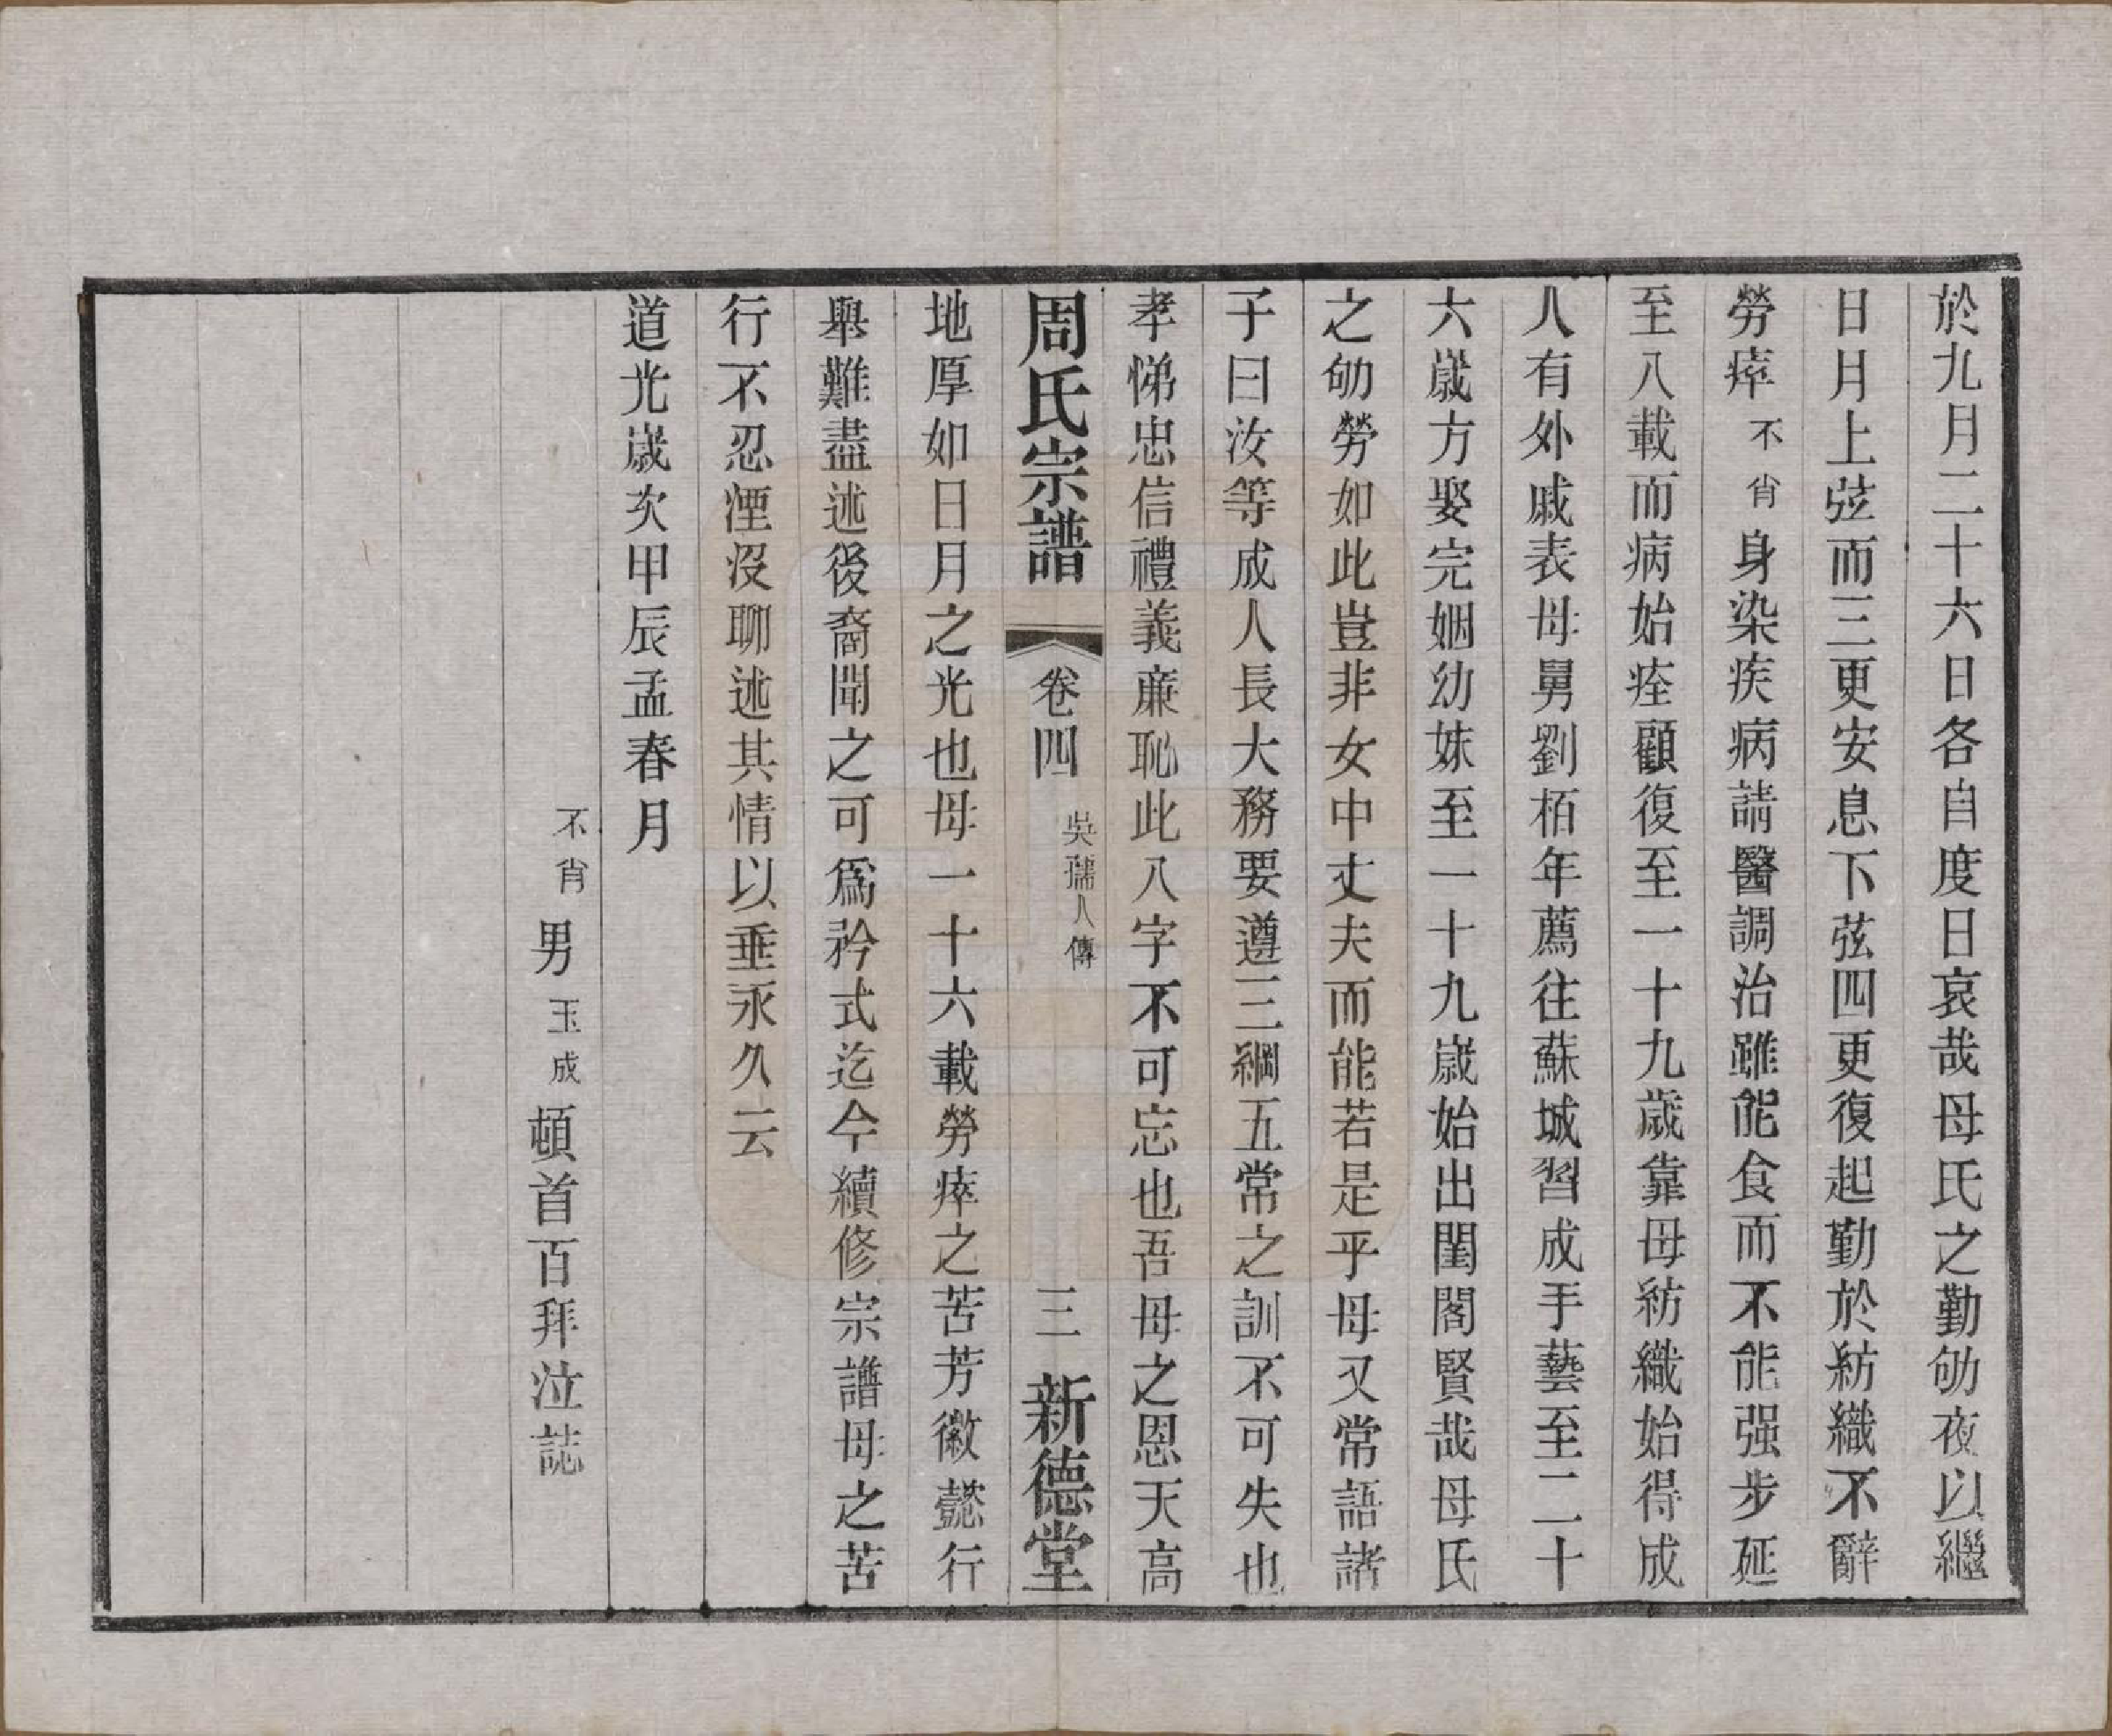 於九月二十六日各自度日哀哉母氏之勤劬夜以繼
日月上弦而三更安息下弦四更復起勤於紡織不辭
勞瘁不肖身染疾病請醫調治雖能食而不能强步延
至八載而病始痊顧復至一十九歲靠母紡織始得成
人有外戚表母舅劉栢年薦往蘇城習成手藝至二十
六歲方娶完姻幼妹至一十九歲始出閨閣賢哉母氏
之劬勞如此豈非女中丈夫而能若是乎母又常語諸
子曰汝等成人長大務要遵三綱五常之訓不可失也
孝悌忠信禮義廉恥此八字不可忘也吾母之恩天高
周氏宗譜 卷四 吳孺人傳 三 新德堂
地厚如日月之光也母一十六載勞瘁之苦芳徽懿行
舉難盡述後裔聞之可爲矜式迄今續修宗譜母之苦
行不忍湮沒聊述其情以垂永久云
道光歲次甲辰孟春月
不肖男玉成頓首百拜泣誌